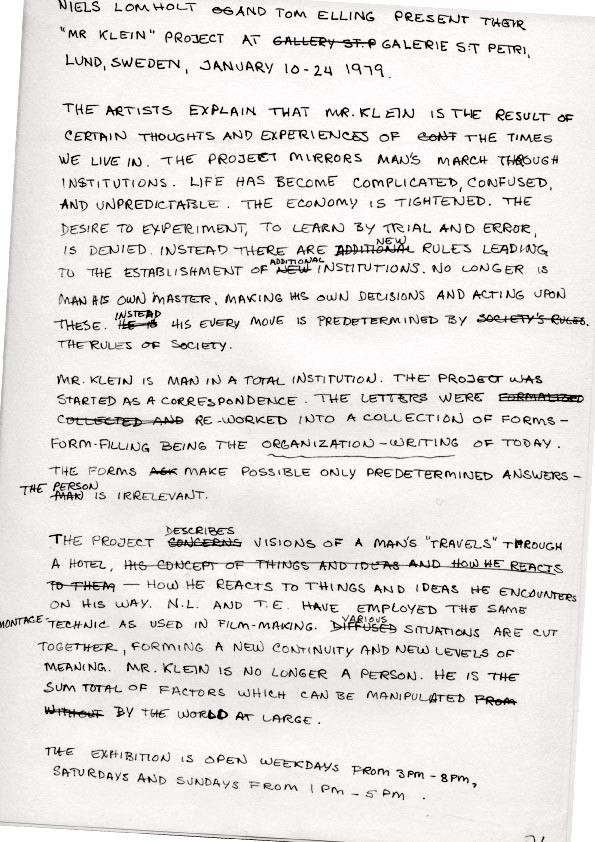 NIELS LOMHOLT OG AND TOM ELLING PRESENT THEIR
"MR KLEIN" PROJECT AT GALLERY ST.P GALERIE S:T PETRI,
LUND, SWEDEN, JANUARY 10-24 1979.
THE ARTISTS EXPLAIN THAT MR. KLEIN IS THE RESULT OF
CERTAIN THOUGHTS AND EXPERIENCES OF CONT THE TIMES
WE LIVE IN. THE PROJECT MIRRORS MAN'S MARCH THROUGH
INSTITUTIONS. LIFE HAS BECOME COMPLICATED, CONFUSED,
AND UNPREDICTABLE. THE ECONOMY IS TIGHTENED. THE
DESIRE TO EXPERIMENT, TO LEARN BY TRIAL AND ERROR,
IS DENIED. INSTEAD THERE ARE ADDITIONAL NEW RULES LEADING
TO THE ESTABLISHMENT OF NEW ADDITIONAL INSTITUTIONS. NO LONGER IS
MAN HIS OWN MASTER, MAKING HIS OWN DECISIONS AND ACTING UPON
THESE. HE IS INSTEAD HIS EVERY MOVE IS PREDETERMINED BY SOCIETY'S RULES.
THE RULES OF SOCIETY.
MR. KLEIN IS MAN IN A TOTAL INSTITUTION. THE PROJECT WAS
STARTED AS A CORRESPONDENCE. THE LETTERS WERE FORMALIZED
COLLECTED AND RE-WORKED INTO A COLLECTION OF FORMS -
FORM-FILLING BEING THE ORGANIZATION-WRITING OF TODAY.
THE FORMS ASK MAKE POSSIBLE ONLY PREDETERMINED ANSWERS -
THE MAN PERSON IS IRRELEVANT.
THE PROJECT CONCERNS DESCRIBES VISIONS OF A MAN'S "TRAVELS" THROUGH
A HOTEL, HIS CONCEPT OF THINGS AND IDEAS AND HOW HE REACTS
TO THEM - HOW HE REACTS TO THINGS AND IDEAS HE ENCOUNTERS
ON HIS WAY. N.L. AND T.E. HAVE EMPLOYED THE SAME
MONTAGE TECHNIC AS USED IN FILM-MAKING. DIFFUSED VARIOUS SITUATIONS ARE CUT
TOGETHER, FORMING A NEW CONTINUITY AND NEW LEVELS OF
MEANING. MR. KLEIN IS NO LONGER A PERSON. HE IS THE
SUM TOTAL OF FACTORS WHICH CAN BE MANIPULATED FROM
WITHOUT BY THE WORLD AT LARGE.
THE EXHIBITION IS OPEN WEEKDAYS FROM 3PM - 8PM,
SATURDAYS AND SUNDAYS FROM 1PM - 5PM.